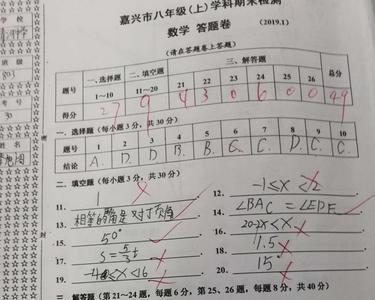 嘉兴市八年级(上)学科期末检测
数学 答题卷 (2019.1)
(请在答题卷上答题)
题号 一、选择题 二、填空题 三、解答题 总分
1~10 11~20 21 22 23 24 25 26
得分 27 9 4 3 0 6 0 0 49
一、选择题(每小题3分,共30分)
题号 1 2 3 4 5 6 7 8 9 10
结论 A. D. D. B. B. C. D. C. C.
二、填空题(每小题3分,共30分)
11. 1 12. -1≤X<2
13. 相等的角是对顶角 14. ∠BAC=∠EDF
15. 50° 16. 20-2X<X
17. S=5/3t 18. 7.5
19. -4<X<16 20. 15
三、解答题(第21~24题,每题6分,第25、26题,每题8分,共40分)
班级
803
考号
30
姓名